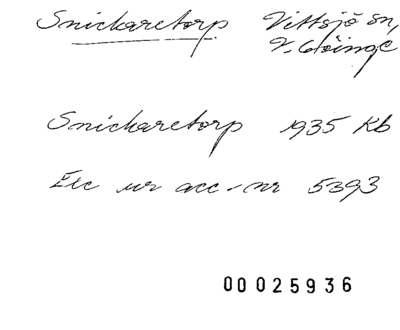 Snickaretorp Vittsjö sn,
V. Göinge
Snickaretorp 1935 Kb
Exc ur acc.-nr 5393
00025936